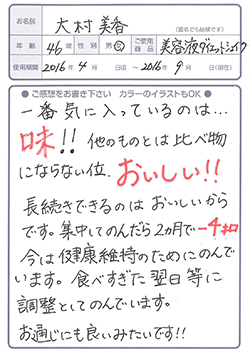 お名前 大村 美香 (匿名でも結構です)
年齢 46歳 性別 男・女 ご使用商品 美容液ダイエットシェイク
使用期間 2016年4月 日頃 ～ 2016年9月 日(現在)
●ご感想をお書き下さい カラーのイラストもOK●
一番気に入っているのは…
味!! 他のものとは比べ物
にならない位、おいしい!!
長続きできるのは おいしいから
です。集中してのんだら2カ月で-4キロ
今は健康維持のためにのんで
います。食べすぎた翌日等に
調整としてのんでいます。
お通じにも良いみたいです!!